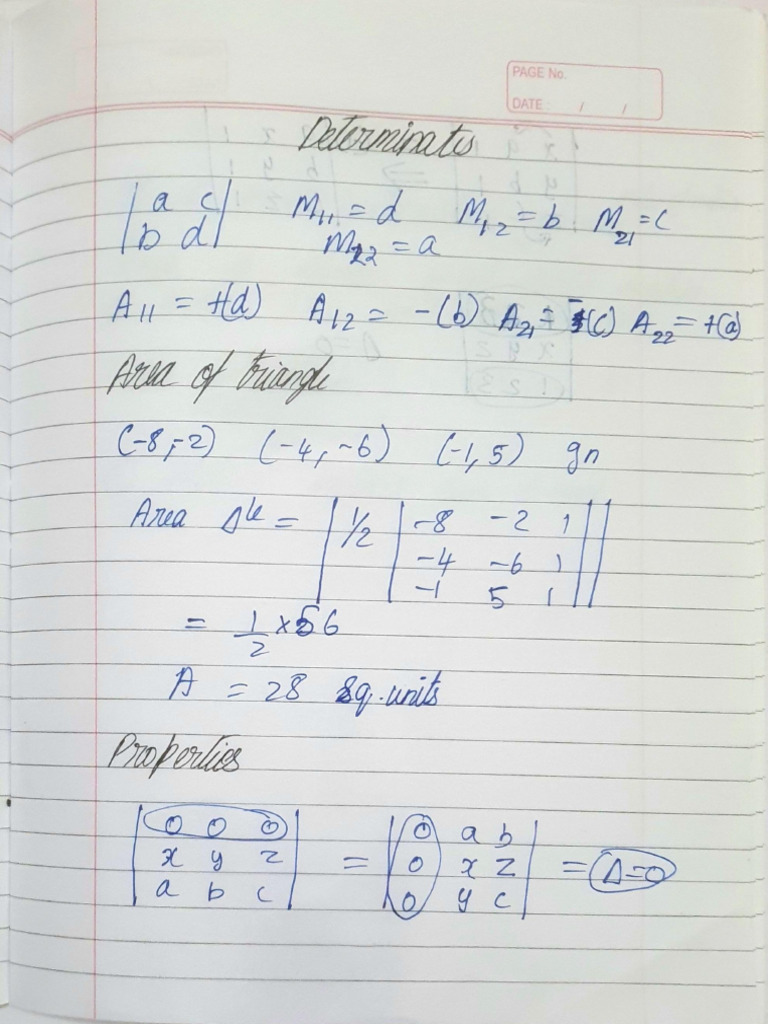 PAGE No.
DATE: / /
Determinates
| a c | M₁₁ = d M₁₂ = b M₂₁ = c
| b d | M₂₂ = a
A₁₁ = +(d) A₁₂ = -(b) A₂₁ = -(c) A₂₂ = +(a)
Area of triangle
(-8,-2) (-4,-6) (-1,5) gn
Area Δle = | 1/2 | -8 -2 1 ||
-4 -6 1
-1 5 1
= 1/2 × 56
A = 28 sq.units
Properties
| 0 0 0 | = | 0 a b | = Δ=0
| x y z | | 0 x z |
| a b c | | 0 y c |